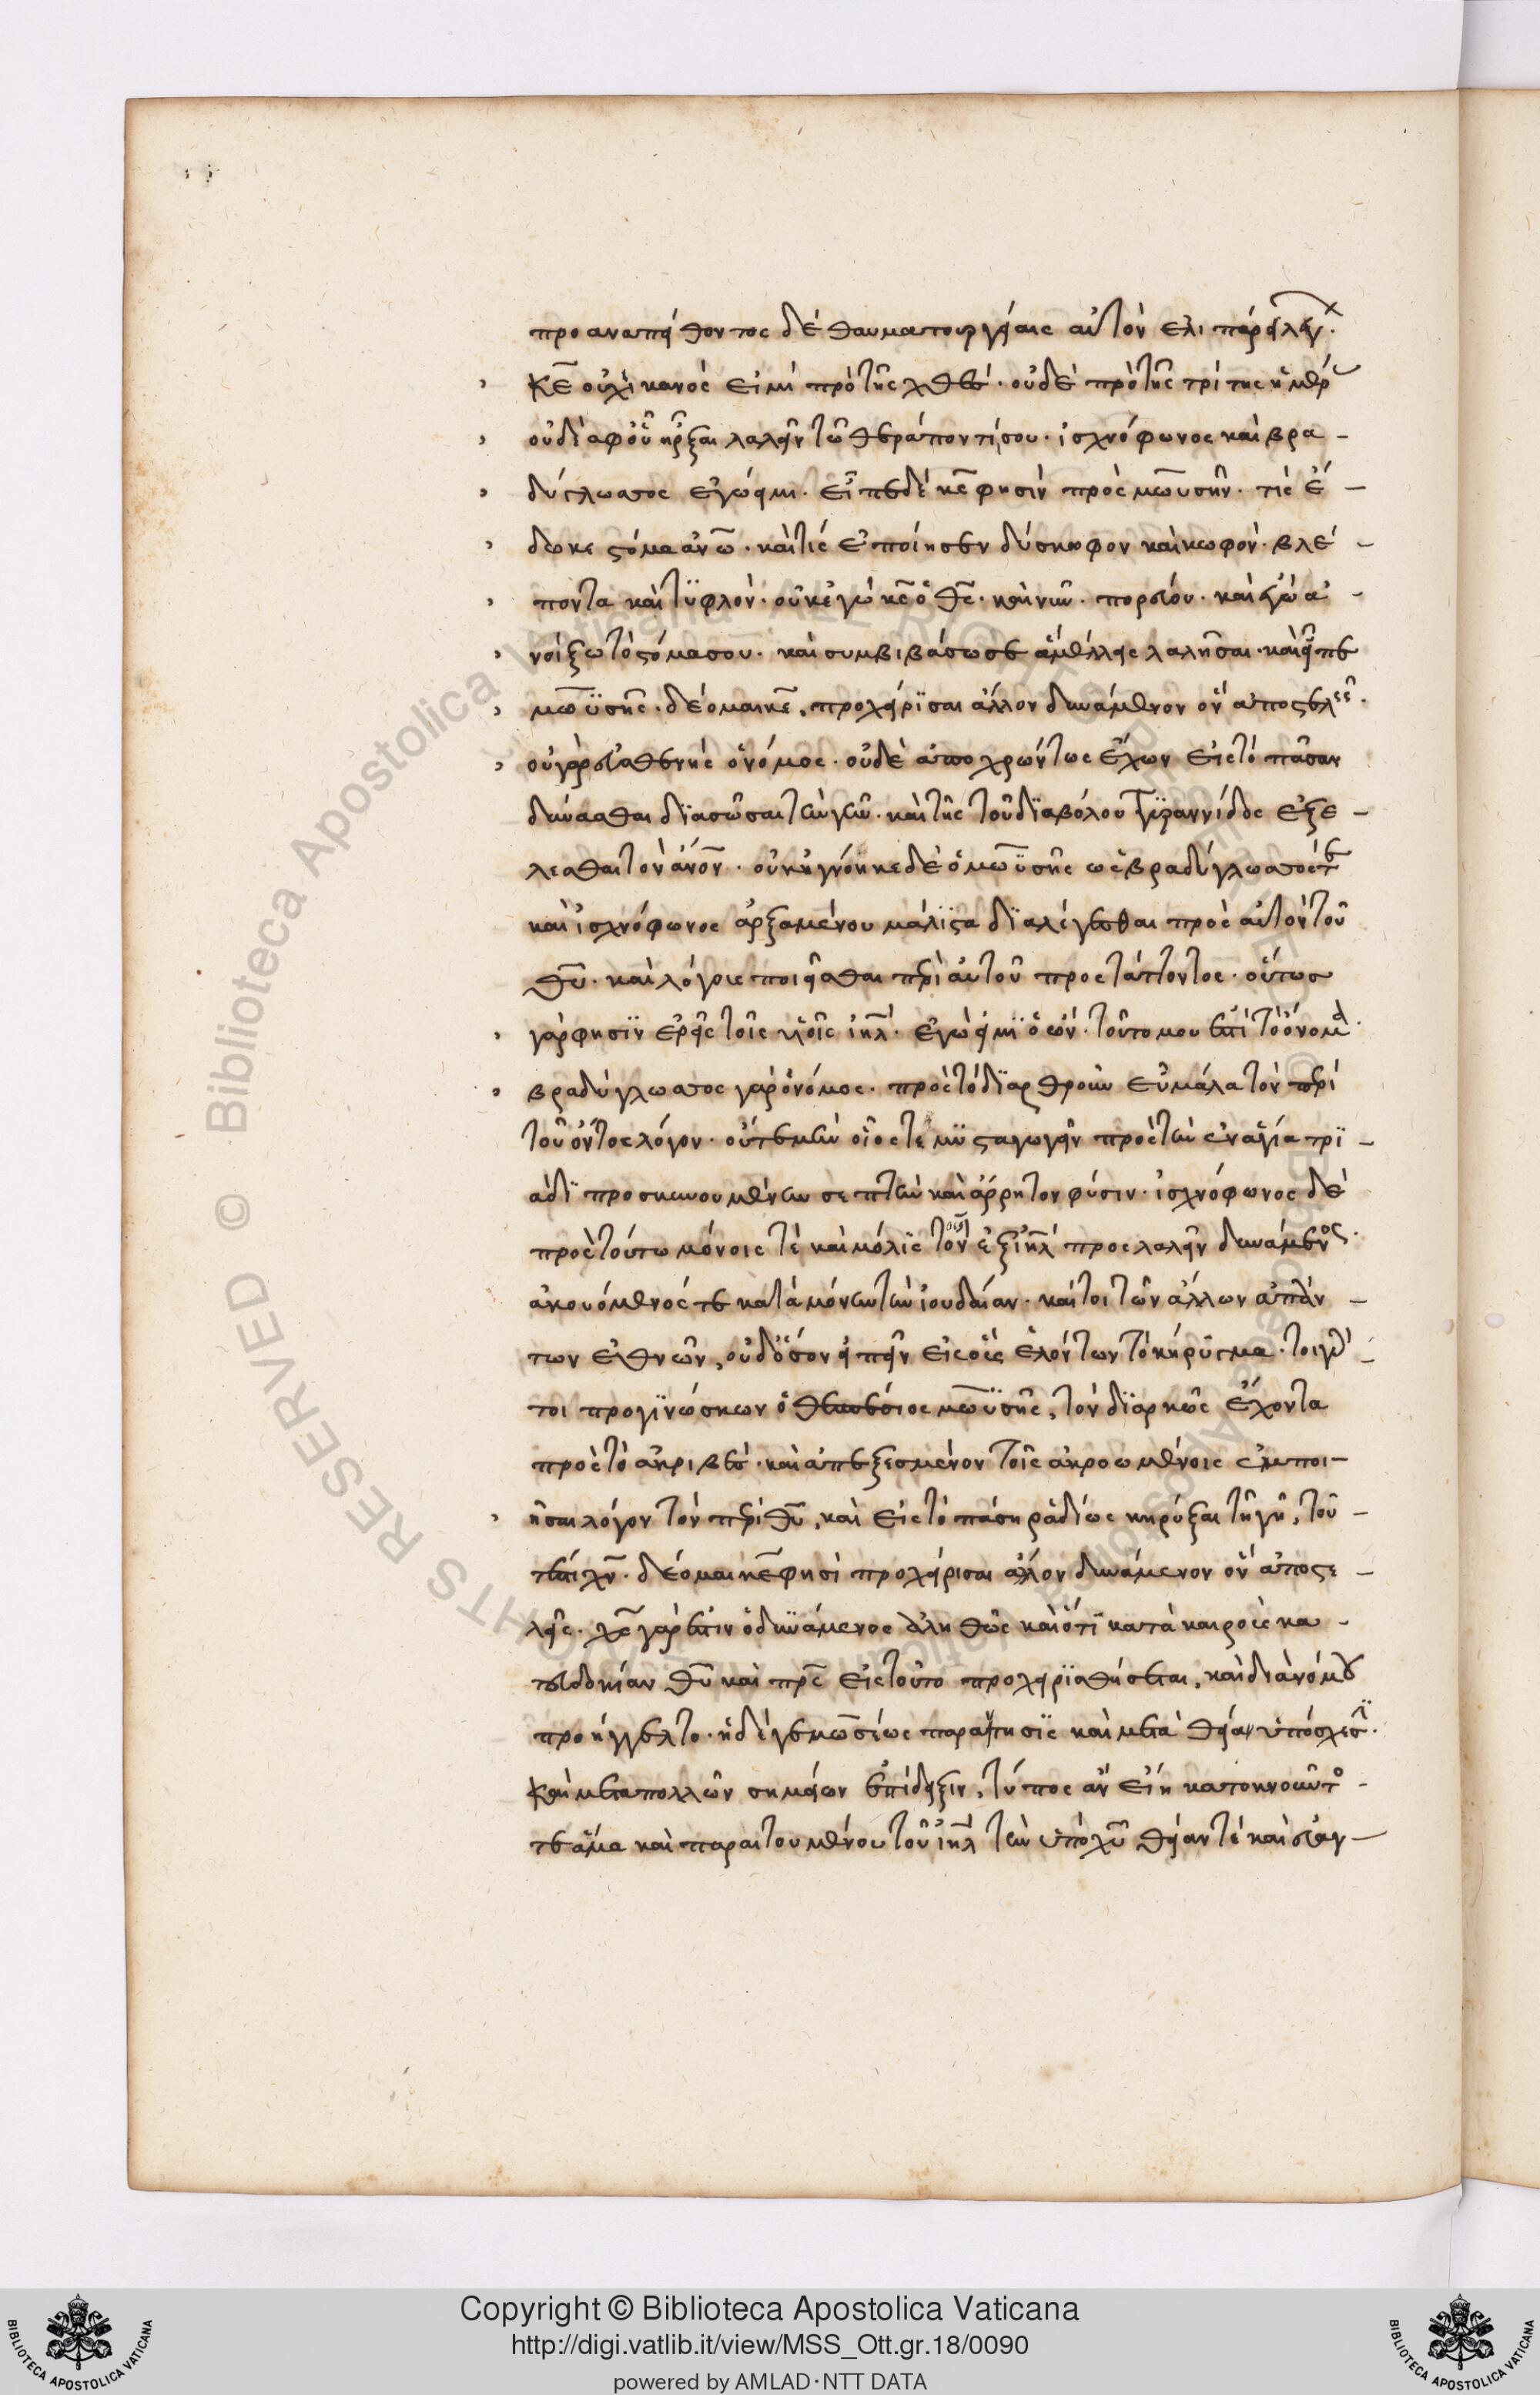 προαναπείθοντος δὲ θαυματουργίαις αὐτὸν ἔτι παρῃ
κε οὐχ ἱκανός εἰμι πρὸ τῆς χθές· οὐδὲ πρὸ τῆς τρίτης ἡμέρ
οὐδὲ ἀφ' οὗ ἤρξαι λαλεῖν τῷ θεράποντί σου· ἰσχνόφωνος καὶ βρα-
δύγλωσσος ἐγώ εἰμι. εἶπε δὲ κς φησὶν πρὸς μωυσῆν· τίς ἔ-
δωκε στόμα ανω· καὶ τίς ἐποίησεν δύσκωφον καὶ κωφόν· βλέ-
ποντα καὶ τυφλόν· οὐκ ἐγὼ κς ὁ θς· καὶ νῦν πορεύου· καὶ ἐγὼ ἀ-
νοίξω τὸ στόμα σου· καὶ συμβιβάσω σε ἃ μέλλεις λαλῆσαι· καὶ εἶπε
μωϋσῆς· δέομαι κε, προχείρισαι ἄλλον δυνάμενον ὃν ἀποστελεῖς·
οὐ γὰρ εὐσθενὴς ὁ νόμος· οὐδὲ ἀποχρώντως ἔχων εἰς τὸ πᾶσαν
δύνασθαι διασῶσαι τὴν γῆν· καὶ τῆς τοῦ διαβόλου τυραννίδος ἐξε-
λέσθαι τὸν ανον· οὐκ ἠγνόηκε δὲ ὁ μωϋσῆς ὡς βραδύγλωσσός τε
καὶ ἰσχνόφωνος ἀρξαμένου μάλιστα διαλέγεσθαι πρὸς αὐτὸν τοῦ
θυ· καὶ λόγους ποιεῖσθαι περὶ αὐτοῦ προστάττοντος· οὕτως
γάρ φησιν ἐρεῖς τοῖς υἱοῖς ιηλ· ἐγώ εἰμι ὁ ὤν· τοῦτό μου ἐστὶ τὸ ὄνομα·
βραδύγλωσσος γὰρ ὁ νόμος· πρὸς τὸ διαρθροῦν εὖ μάλα τὸν περὶ
τοῦ ὄντος λόγον· οὔτε μὴν οἷός τε μυσταγωγεῖν πρὸς τὴν ἐν ἁγίᾳ τρι-
άδι προσκυνουμένην σεπτὴν καὶ ἄρρητον φύσιν· ἰσχνόφωνος δὲ
πρὸς τούτῳ μόνοις τὲ καὶ μόλις τοῖς ἐξ ιηλ προσλαλεῖν δυνάμενος·
ἀκουόμενός τε κατὰ μόνην τὴν ἰουδαίαν· καίτοι τῶν ἄλλων ἁπάν-
των ἐθνῶν, οὐδ' ὅσον εἰπεῖν εἰσοῖς ἑλόντων τὸ κήρυγμα· τοιγὰρ-
τοι προγινώσκων ὁ θεσπέσιος μωϋσῆς, τὸν διαρκῶς ἔχοντα
πρὸς τὸ ἀκριβές· καὶ ἀπεξεσμένον τοῖς ἀκροωμένοις ἐμποι-
ῆσαι λόγον τὸν περὶ θυ, καὶ εἰς τὸ πάσῃ ῥᾳδίως κηρύξαι τῇ γῇ, τοῦ-
τέστι χν· δέομαι κε φησὶ προχείρισαι ἄλλον δυνάμενον ὃν ἀποστε-
λεῖς· χς γάρ ἐστιν ὁ δυνάμενος ἀληθῶς καὶ ὅτι κατὰ καιροὺς κα-
τευδοκίαν θυ καὶ πρς εἰς τοῦτο προχειρισθήσεται, καὶ διὰ νόμου
προήγγελτο· ἡ δέ γε μωσέως παραίτησις καὶ μετὰ θείαν ὑπόσχεσιν·
καὶ μετὰ πολλῶν σημείων ἐπίδειξιν, τύπος ἂν εἴη κατοκνοῦντός
τε ἅμα καὶ παραιτουμένου τοῦ ιηλ τὴν ὑπὸ χυ θείαν τὲ καὶ εὐαγ-
Copyright © Biblioteca Apostolica Vaticana
http://digi.vatlib.it/view/MSS_Ott.gr.18/0090
powered by AMLAD·NTT DATA